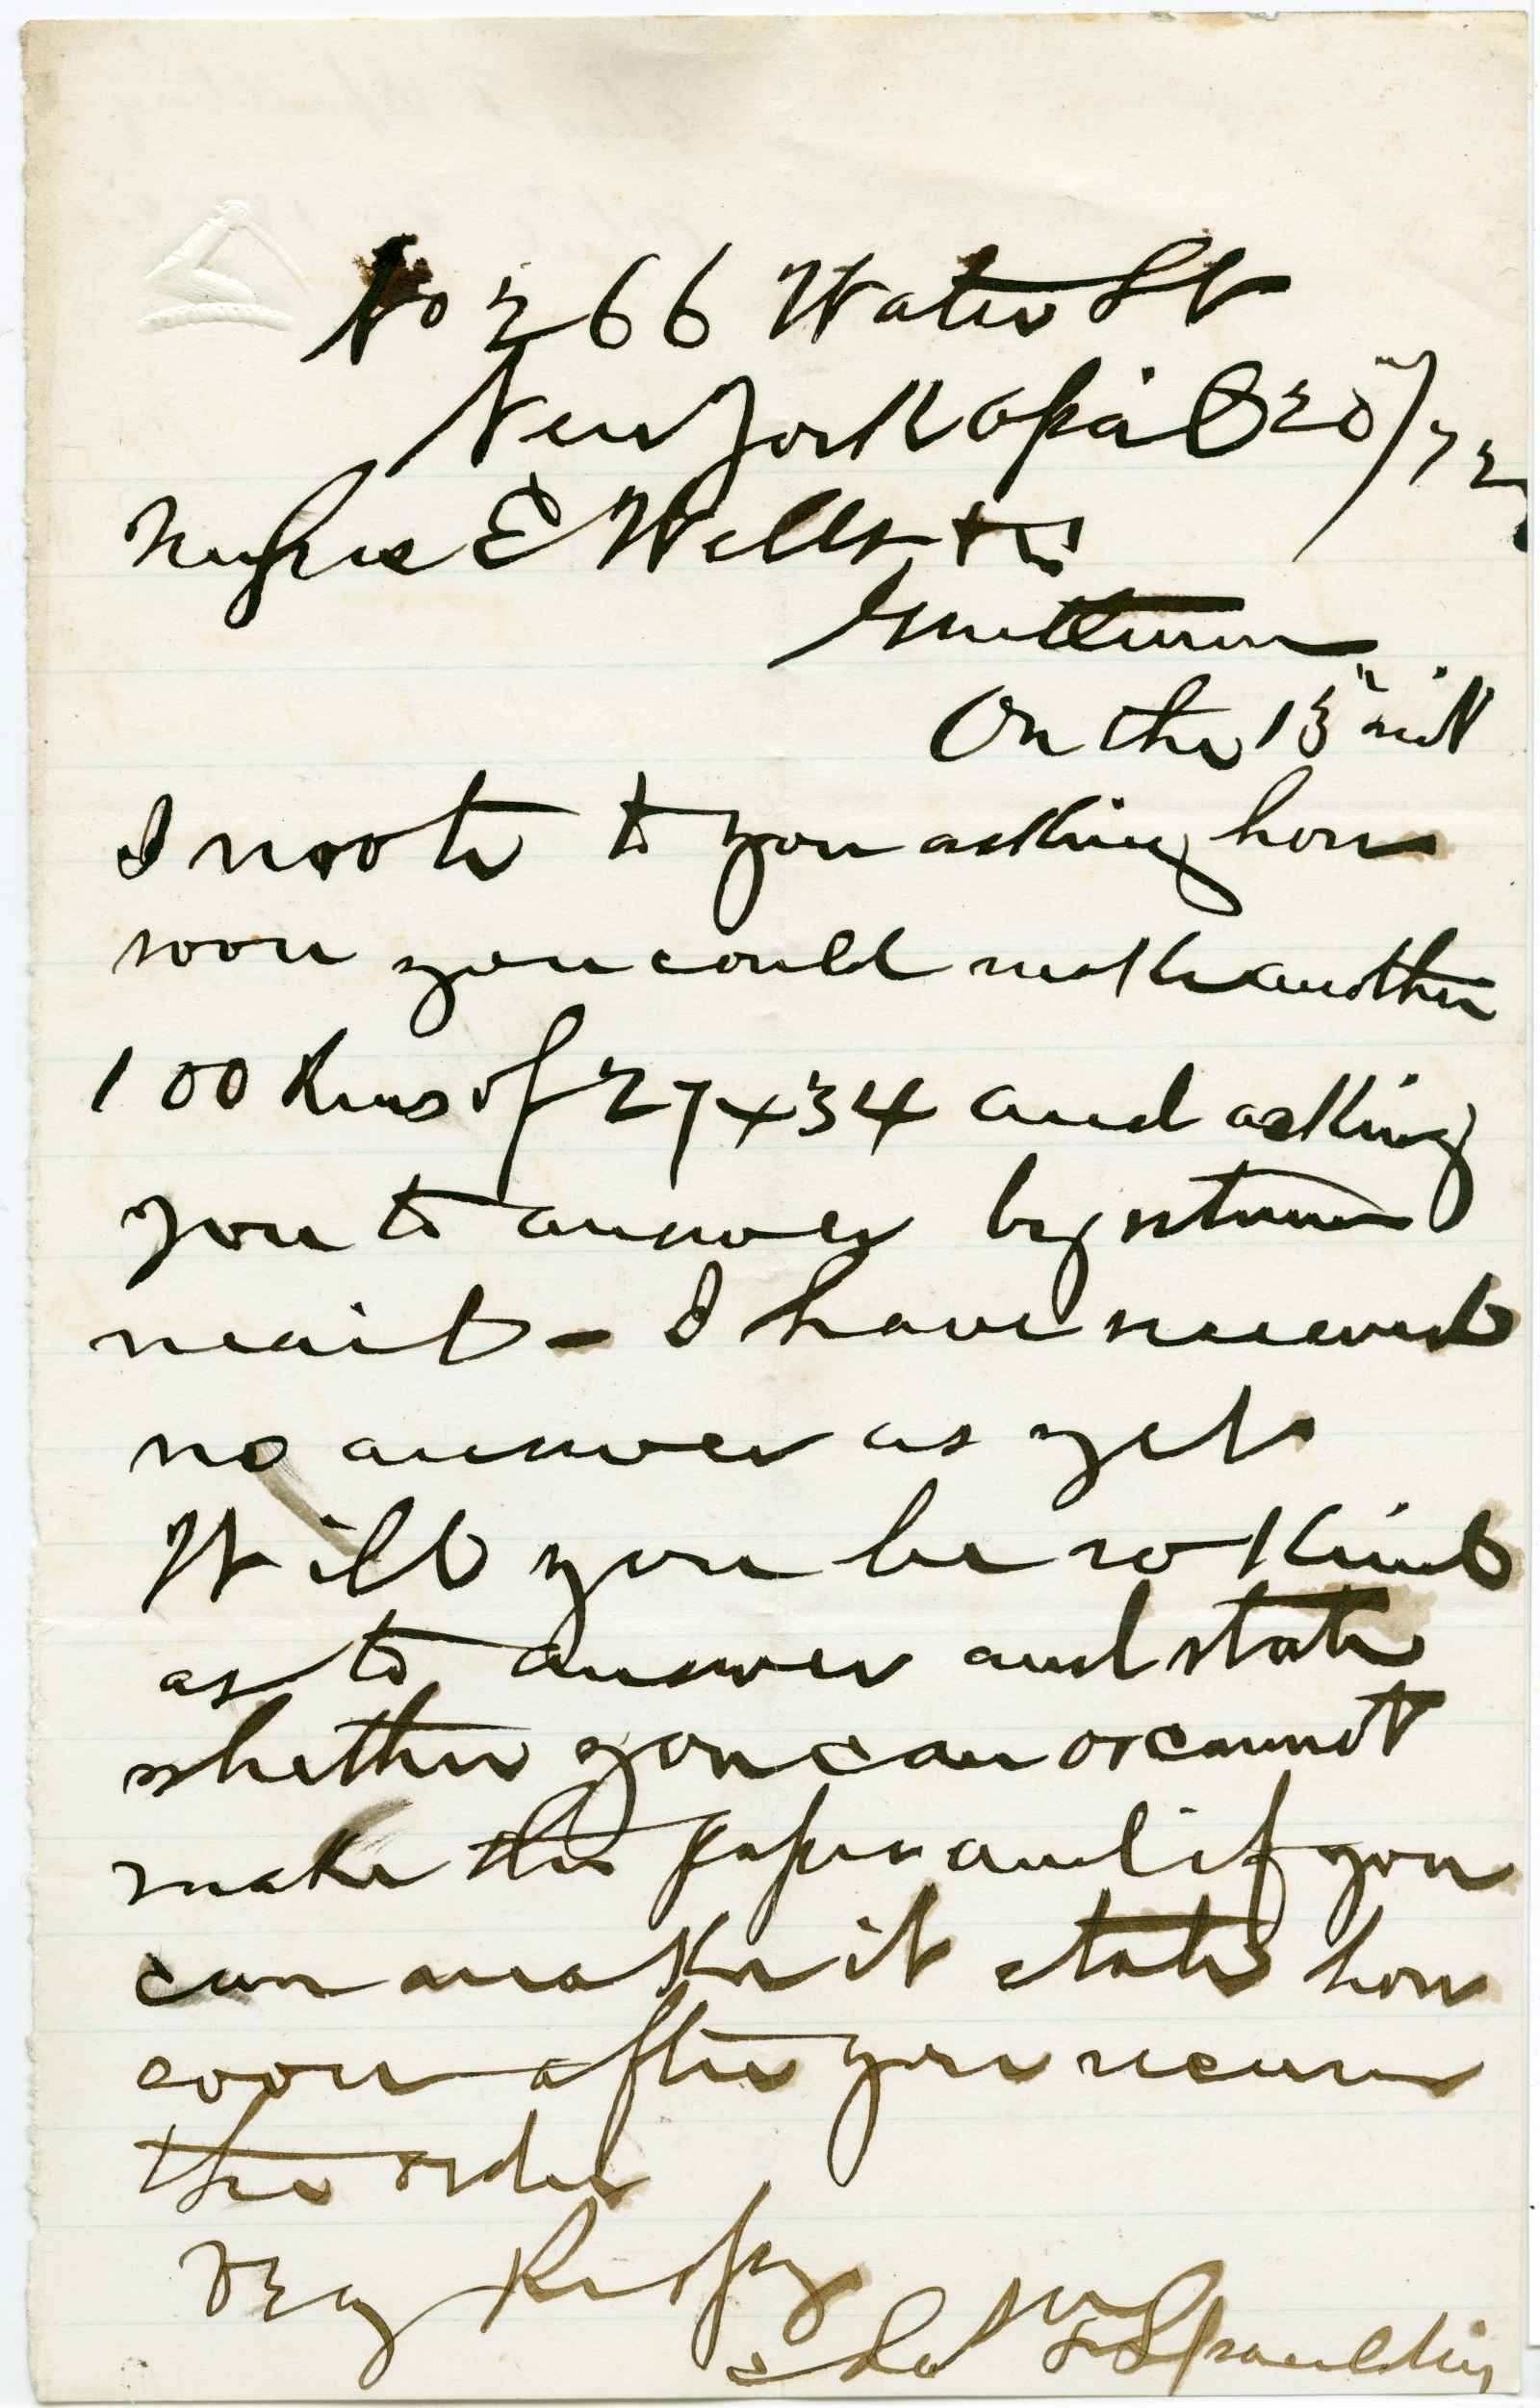 No 266 Water St
New York April 20"/72
E Wells
Gentlemen
On the 15" inst
I wrote to you asking how
soon you could make another
100 Rms of 27x34 and asking
you to answer by return
mail - I have received
no answer as yet
Will you be so kind
as to answer and state
whether you can or cannot
make the paper and if you
can make it state how
soon after you receive
the order
Very Respy
Spaulding